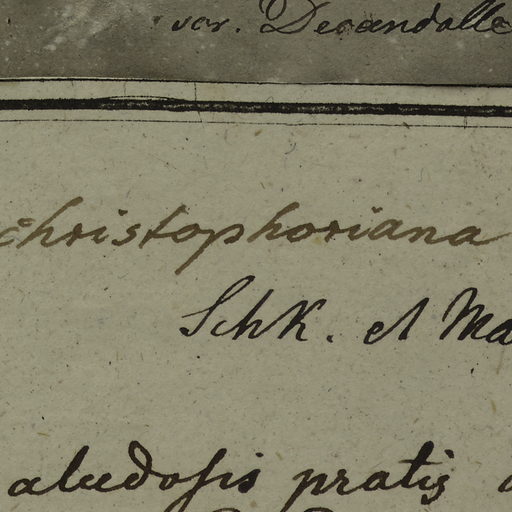 var. Decandolle
christophoriana
Schk. et Ma
aludosis pratis